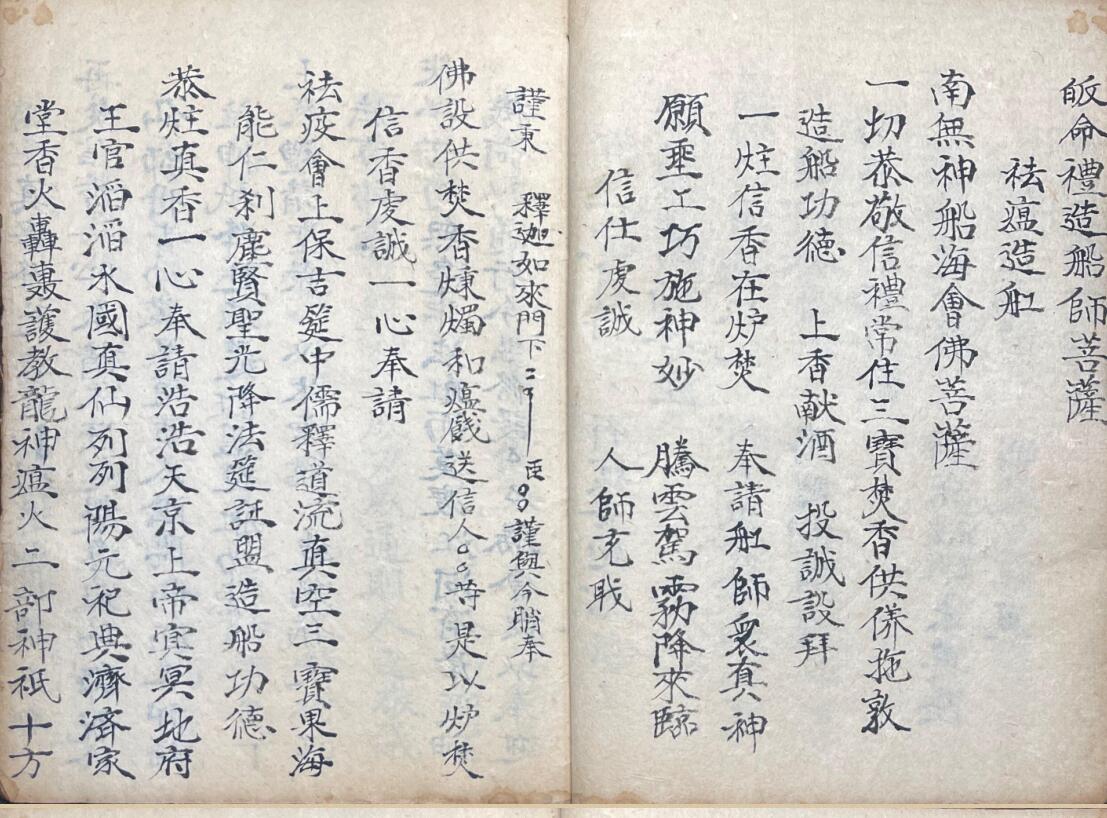 皈命禮造船師菩薩
祛瘟造舡
南無神船海會佛菩薩
一切恭敬信禮常住三寶焚香供儀拖敦
造船功德 上香献酒 投誠設拜
一炷信香在炉焚 奉請舡師衆真神
願垂工巧施神妙 騰雲駕霧降來臨
信仕虔誠 人師克戝
謹東 釋迦如來門下 臣 謹與今晭奉
佛設供焚香煉燭和瘟戲送信人 等是以炉焚
信香虔誠一心奉請
祛疫會上保吉筵中儒釋道流真空三寶果海
能仁刹塵賢聖光降法筵証盟造船功德
恭炷真香一心奉請浩浩天京上帝宾冥地府
王官滔滔水國真仙列列陽元祀典濟済家
堂香火轟轟護教龍神瘟火二部神祇十方